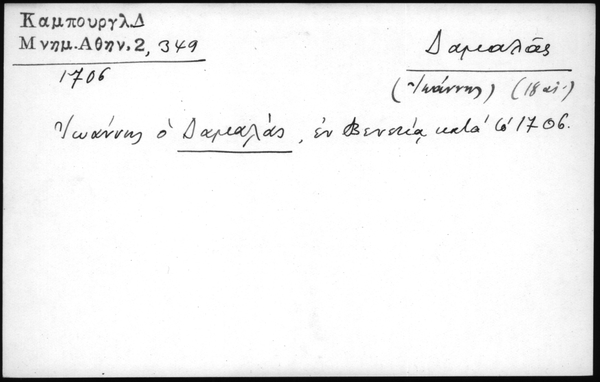 Καμπουργλ.Δ
Μνημ.Αθην.2, 349
1706
Δαμαλᾶς
(Ἰωάννης) (18 αἰ.)
Ἰωάννης ὁ Δαμαλᾶς, ἐν Βενετίᾳ κατά τό 1706.